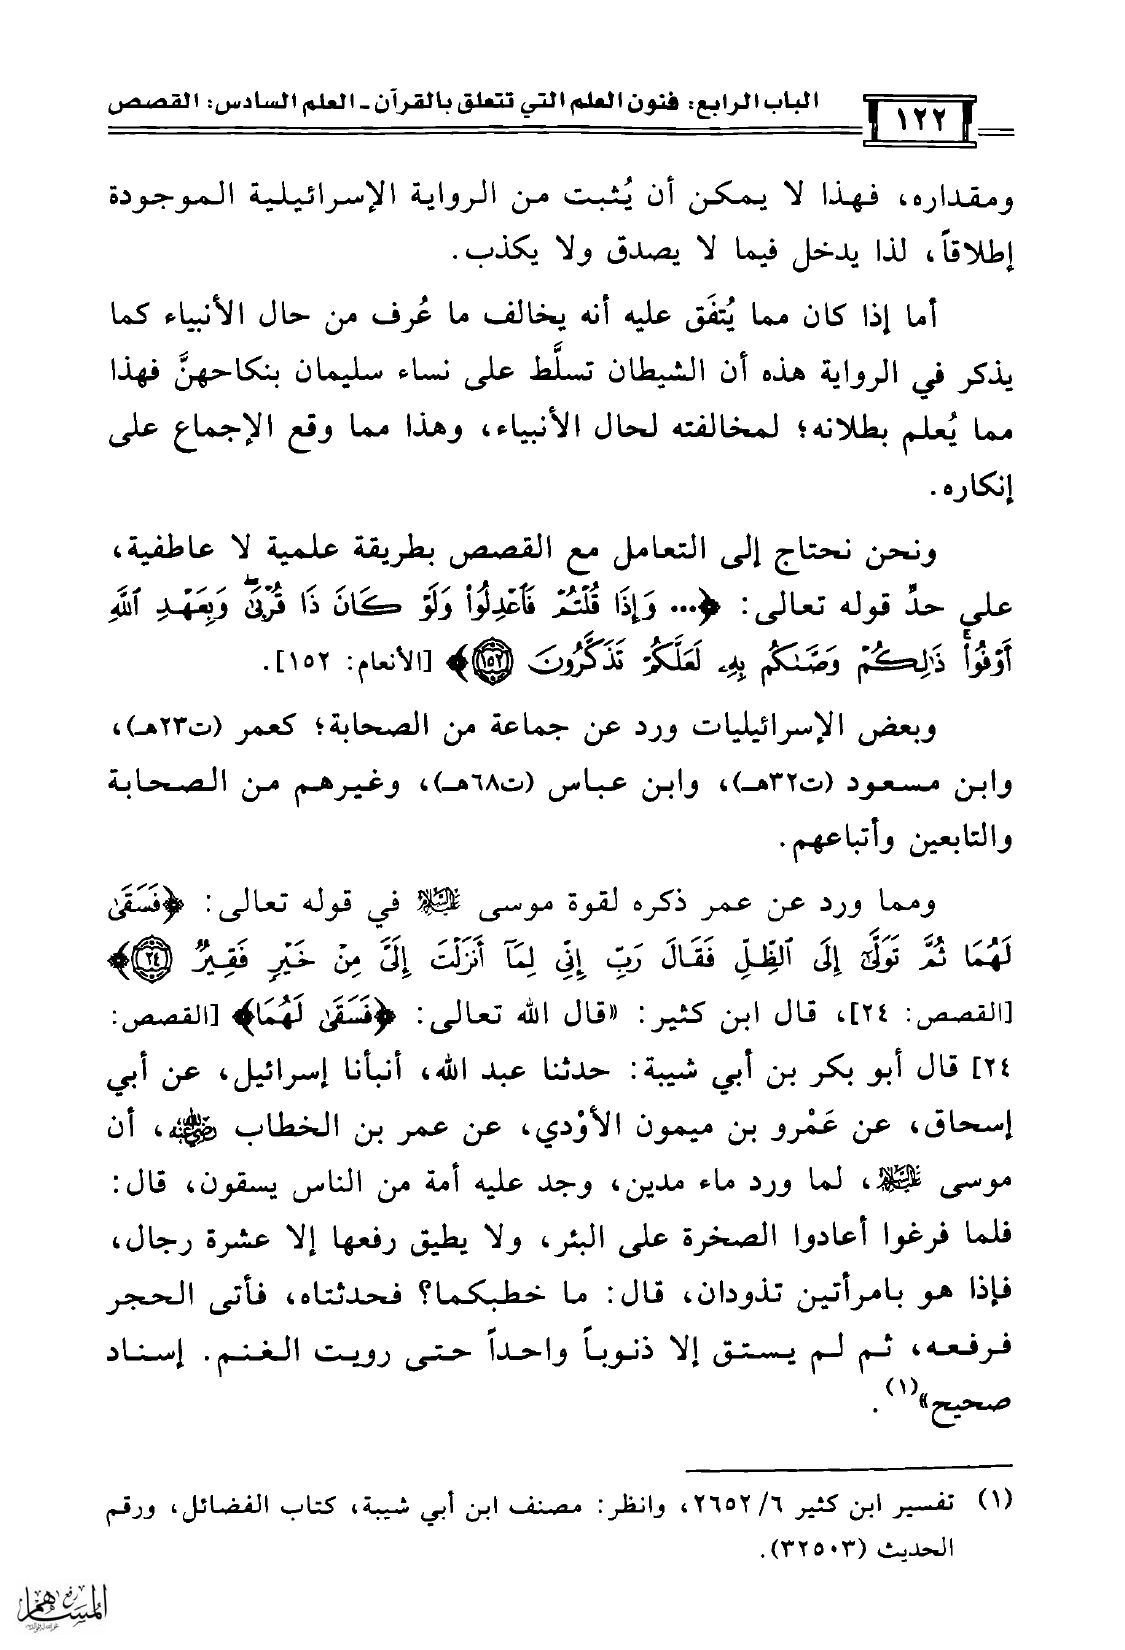 ١٢٢
الباب الرابع: فنون العلم التي تتعلق بالقرآن ـ العلم السادس: القصص
ومقداره، فهذا لا يمكن أن يُثبت من الرواية الإسرائيلية الموجودة
إطلاقاً، لذا يدخل فيما لا يصدق ولا يكذب.
أما إذا كان مما يُتفَق عليه أنه يخالف ما عُرف من حال الأنبياء كما
يذكر في الرواية هذه أن الشيطان تسلَّط على نساء سليمان بنكاحهنَّ فهذا
مما يُعلم بطلانه؛ لمخالفته لحال الأنبياء، وهذا مما وقع الإجماع على
إنكاره.
ونحن نحتاج إلى التعامل مع القصص بطريقة علمية لا عاطفية،
على حدِّ قوله تعالى: ﴿... وَإِذَا قُلْتُمْ فَٱعْدِلُوا۟ وَلَوْ كَانَ ذَا قُرْبَىٰۖ وَبِعَهْدِ ٱللَّهِ
أَوْفُوا۟ۚ ذَٰلِكُمْ وَصَّىٰكُم بِهِۦ لَعَلَّكُمْ تَذَكَّرُونَ ١٥٢﴾ [الأنعام: ١٥٢].
وبعض الإسرائيليات ورد عن جماعة من الصحابة؛ كعمر (ت٢٣هـ)،
وابن مسعود (ت٣٢هـ)، وابن عباس (ت٦٨هـ)، وغيرهم من الصحابة
والتابعين وأتباعهم.
ومما ورد عن عمر ذكره لقوة موسى عليه السلام في قوله تعالى: ﴿فَسَقَىٰ
لَهُمَا ثُمَّ تَوَلَّىٰٓ إِلَى ٱلظِّلِّ فَقَالَ رَبِّ إِنِّى لِمَآ أَنزَلْتَ إِلَىَّ مِنْ خَيْرٍ فَقِيرٌ ٢٤﴾
[القصص: ٢٤]، قال ابن كثير: «قال الله تعالى: ﴿فَسَقَىٰ لَهُمَا﴾ [القصص:
٢٤] قال أبو بكر بن أبي شيبة: حدثنا عبد الله، أنبأنا إسرائيل، عن أبي
إسحاق، عن عَمْرو بن ميمون الأوْدي، عن عمر بن الخطاب رضي الله عنه، أن
موسى عليه السلام، لما ورد ماء مدين، وجد عليه أمة من الناس يسقون، قال:
فلما فرغوا أعادوا الصخرة على البئر، ولا يطيق رفعها إلا عشرة رجال،
فإذا هو بامرأتين تذودان، قال: ما خطبكما؟ فحدثتاه، فأتى الحجر
فرفعه، ثم لم يستق إلا ذنوباً واحداً حتى رويت الغنم. إسناد
صحيح»(١).
(١) تفسير ابن كثير ٦/ ٢٦٥٢، وانظر: مصنف ابن أبي شيبة، كتاب الفضائل، ورقم
الحديث (٣٢٥٠٣).